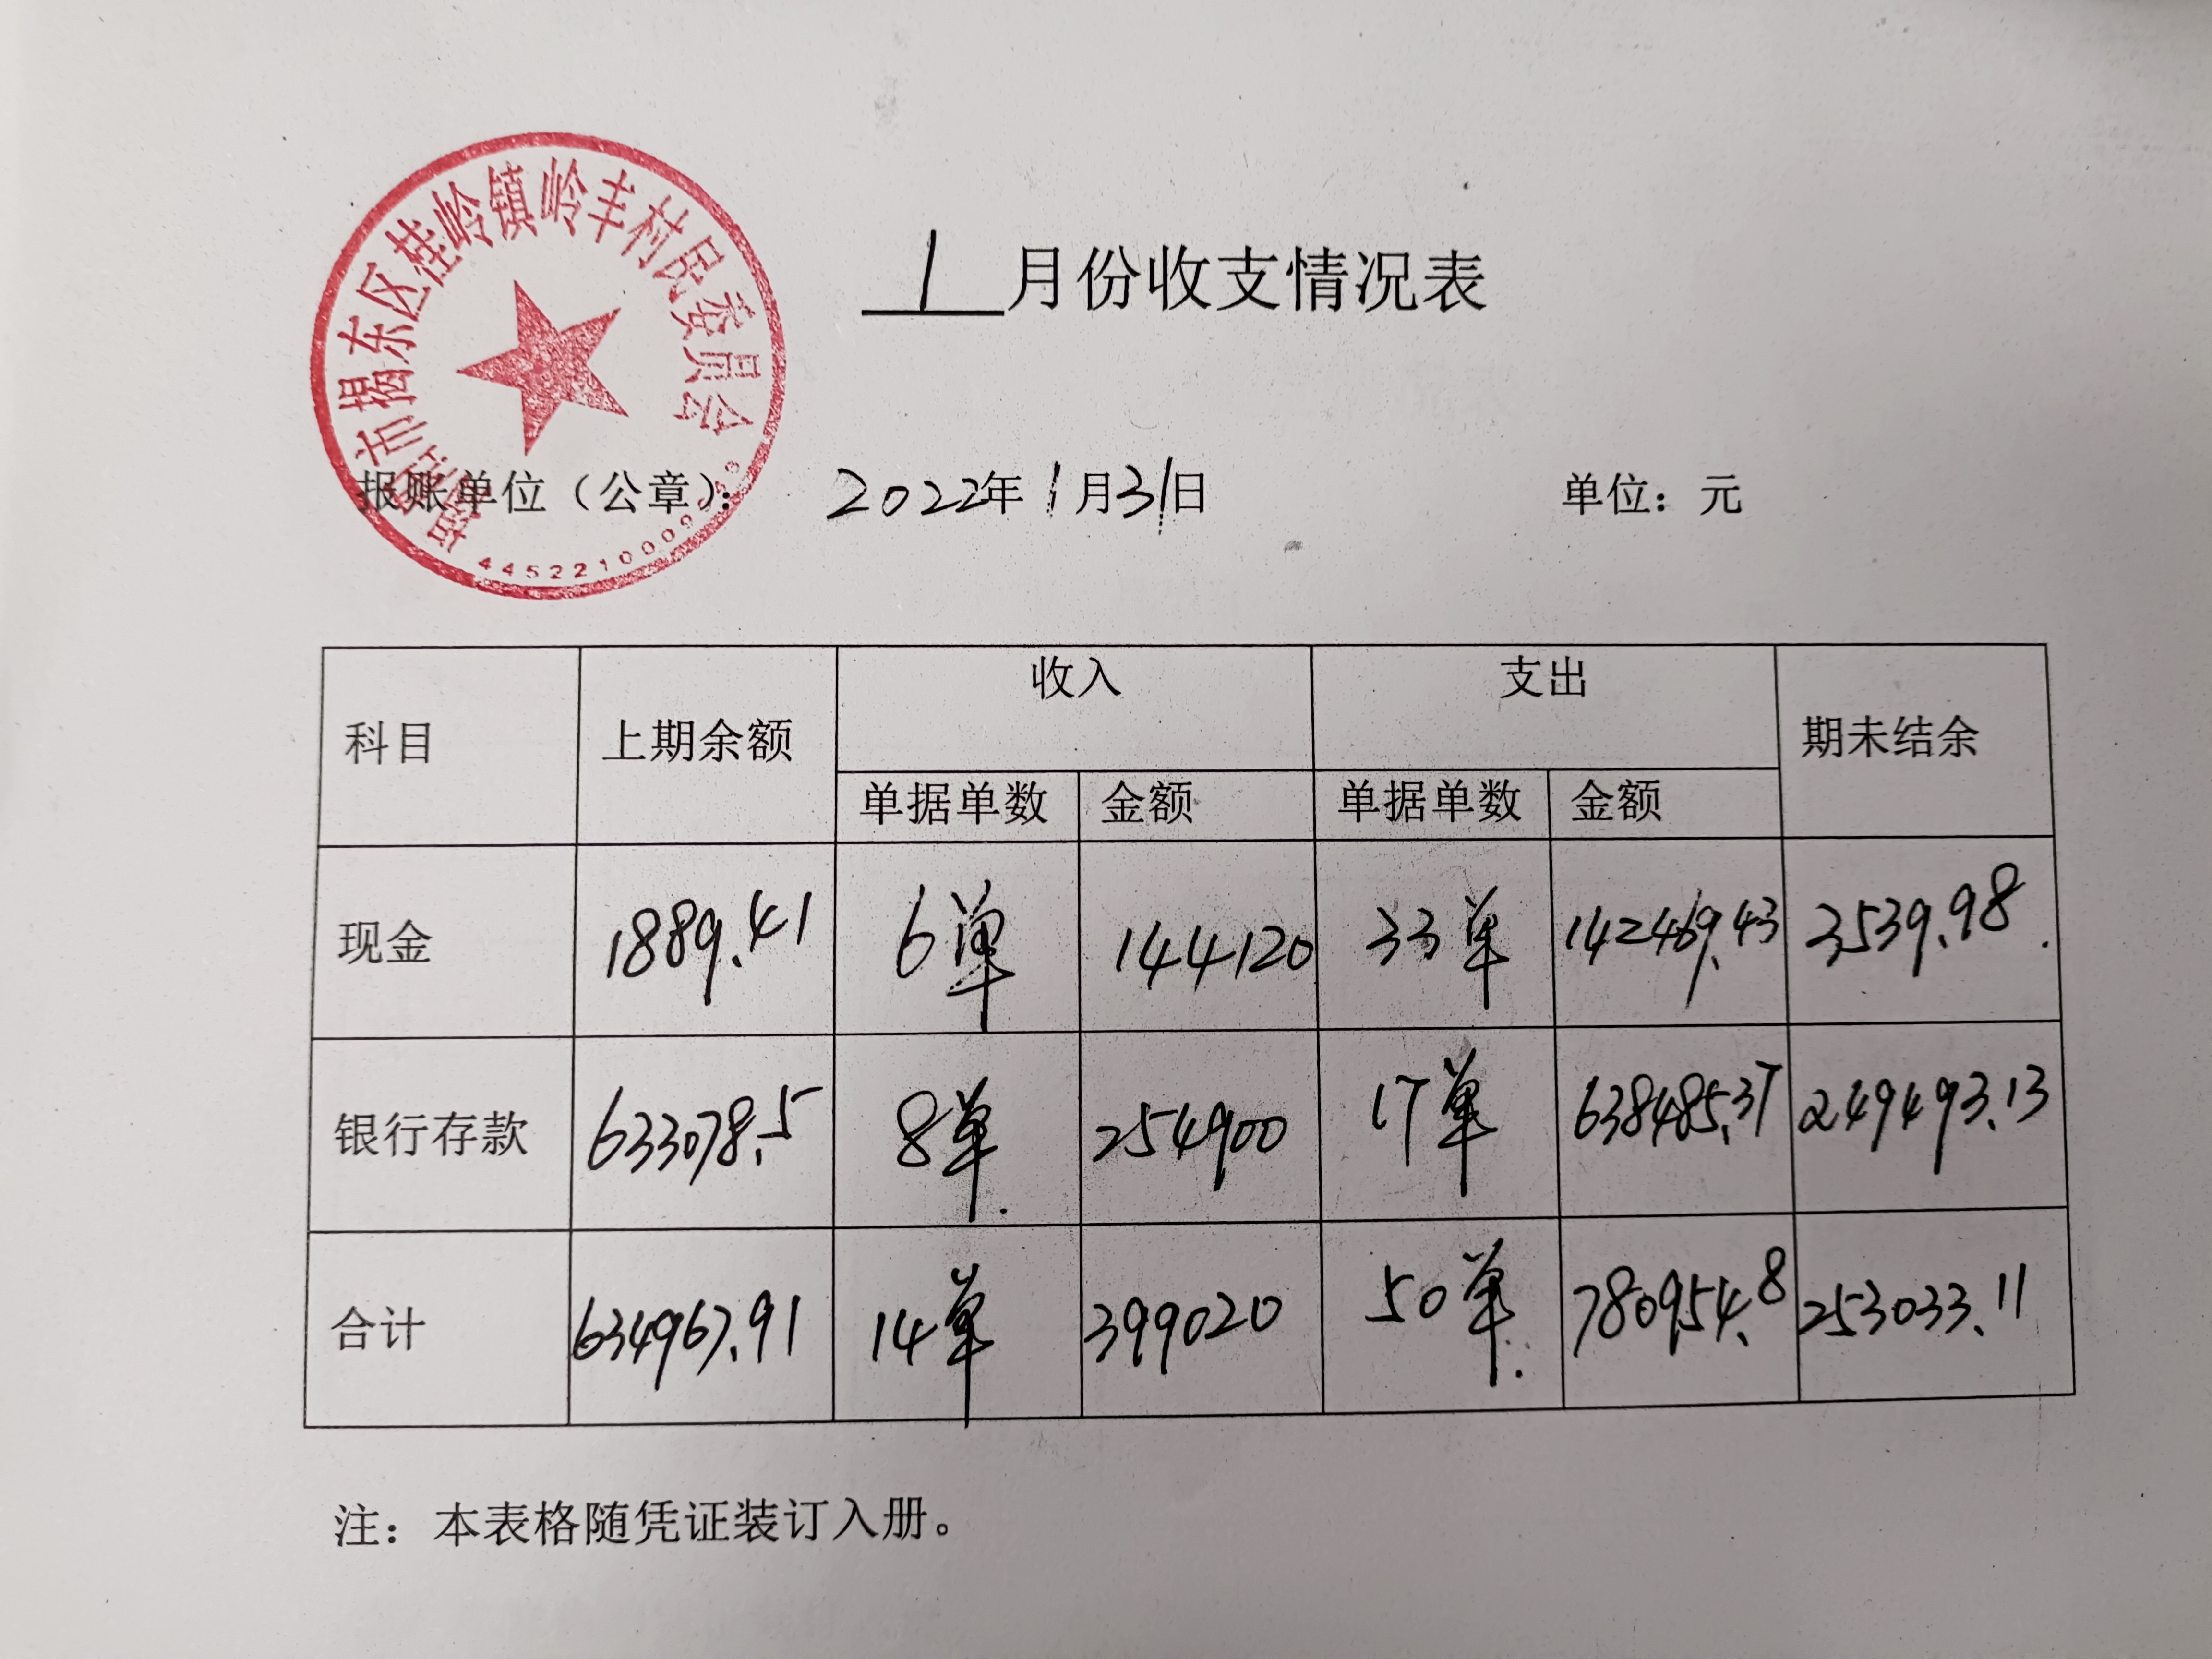 揭阳市揭东区桂岭镇岭丰村民委员会
1月份收支情况表
报账单位（公章）： 2022年1月31日 单位：元
科目 上期余额 收入 支出 期未结余
单据单数 金额 单据单数 金额
现金 1889.41 6单 144120 33单 142469.43 3539.98
银行存款 633078.5 8单 254900 17单 638485.37 249493.13
合计 634967.91 14单 399020 50单 780954.8 253033.11
注：本表格随凭证装订入册。